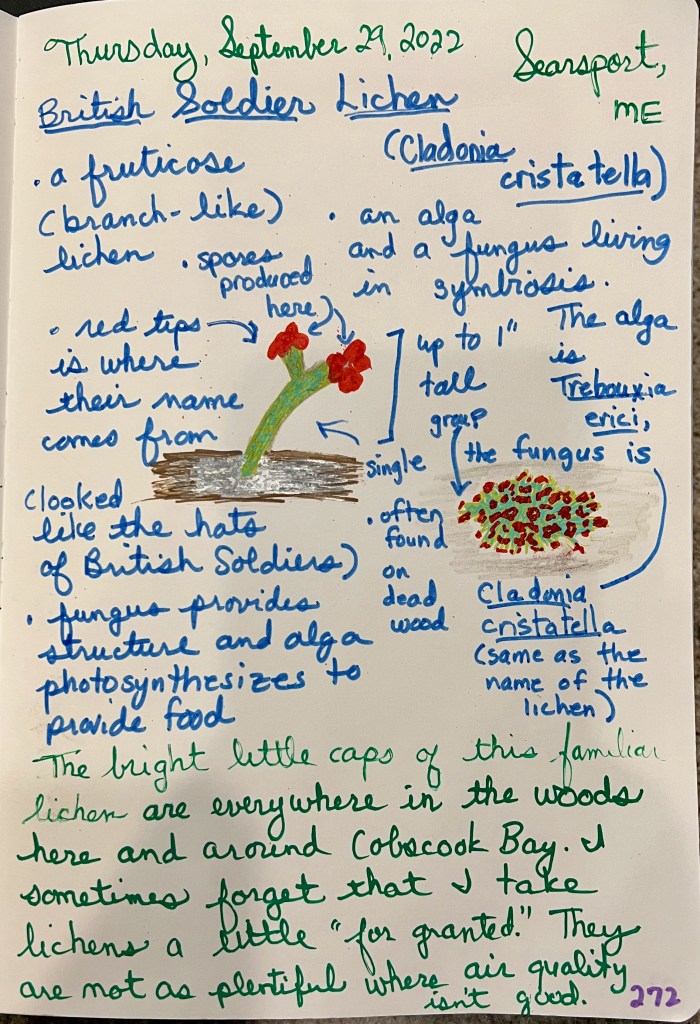 Thursday, September 29, 2022
Searsport,
ME
British Soldier Lichen
(Cladonia
cristatella)
• a fruticose
(branch-like)
lichen
• an alga
and a fungus living
in symbiosis.
The alga
is
Trebouxia
erici,
the fungus is
Cladonia
cristatella
(same as the
name of the
lichen)
• spores
produced
here)
• red tips
is where
their name
comes from
(looked
like the hats
of British Soldiers)
up to 1"
tall
single
group
• often
found
on
dead
wood
• fungus provides
structure and alga
photosynthesizes to
provide food
The bright little caps of this familiar
lichen are everywhere in the woods
here and around Cobscook Bay. I
sometimes forget that I take
lichens a little "for granted." They
are not as plentiful where air quality
isn't good.
272